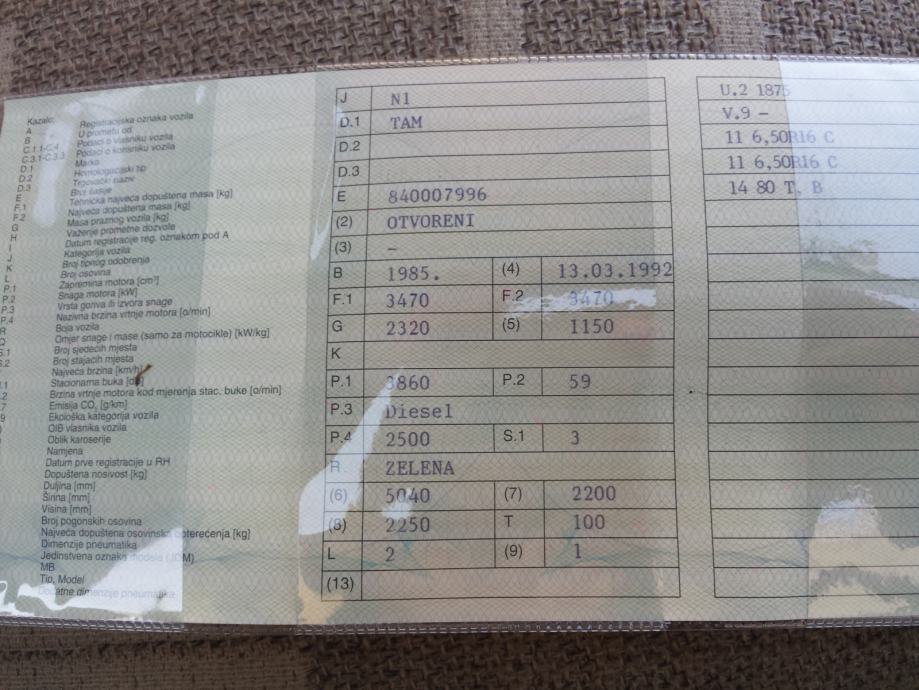 Kazalo:
A Registracijska oznaka vozila
B U prometu od
C.1.1-C.4 Podaci o vlasniku vozila
C.3.1-C.3.3 Podaci o korisniku vozila
D.1 Marka
D.2 Homologacijski tip
D.3 Trgovački naziv
E Broj šasije
F.1 Tehnička najveća dopuštena masa [kg]
F.2 Najveća dopuštena masa [kg]
G Masa praznog vozila [kg]
H Važenje prometne dozvole
I Datum registracije reg. oznakom pod A
J Kategorija vozila
K Broj tipnog odobrenja
L Broj osovina
P.1 Zapremina motora [cm³]
P.2 Snaga motora [kW]
P.3 Vrsta goriva ili izvora snage
P.4 Nazivna brzina vrtnje motora [o/min]
R Boja vozila
Q Omjer snage i mase (samo za motocikle) [kW/kg]
S.1 Broj sjedećih mjesta
S.2 Broj stajaćih mjesta
Najveća brzina [km/h]
.1 Stacionarna buka
.2 Brzina vrtnje motora kod mjerenja stac. buke [o/min]
.7 Emisija CO₂ [g/km]
9 Ekološka kategorija vozila
OIB vlasnika vozila
Oblik karoserije
Namjena
Datum prve registracije u RH
Dopuštena nosivost [kg]
Duljina [mm]
Širina [mm]
Visina [mm]
Broj pogonskih osovina
Najveća dopuštena osovinska opterećenja [kg]
Dimenzije pneumatika
Jedinstvena oznaka modela (JOM)
MB
Tip, Model
Dodatne dimenzije pneumatika
J N1
D.1 TAM
D.2
D.3
E 840007996
(2) OTVORENI
(3) –
B 1985. (4) 13.03.1992
F.1 3470 F.2 3470
G 2320 (5) 1150
K
P.1 3860 P.2 59
P.3 Diesel
P.4 2500 S.1 3
R ZELENA
(6) 5040 (7) 2200
(8) 2250 T 100
L 2 (9) 1
(13)
U.2 1875
V.9 –
11 6,50R16 C
11 6,50R16 C
14 80 T, B